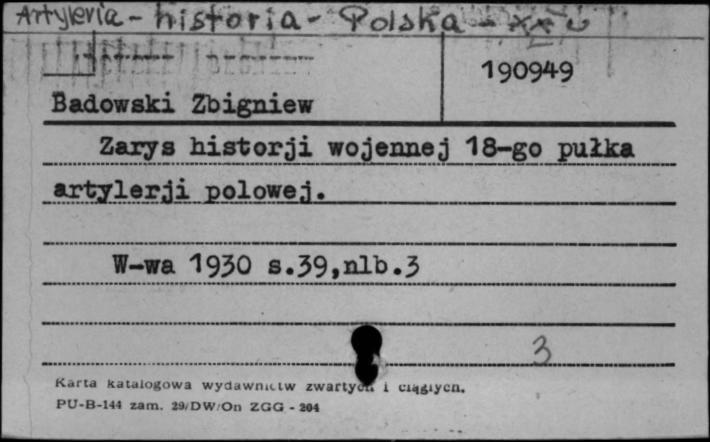 Artyleria - historia - Polska - XX w
190949
Badowski Zbigniew
Zarys historji wojennej 18-go pułka
artylerji polowej.
W-wa 1930 s.39,nlb.3
3
Karta katalogowa wydawnictw zwartych i ciągłych.
PU-B-144 zam. 29/DW/On ZGG - 204